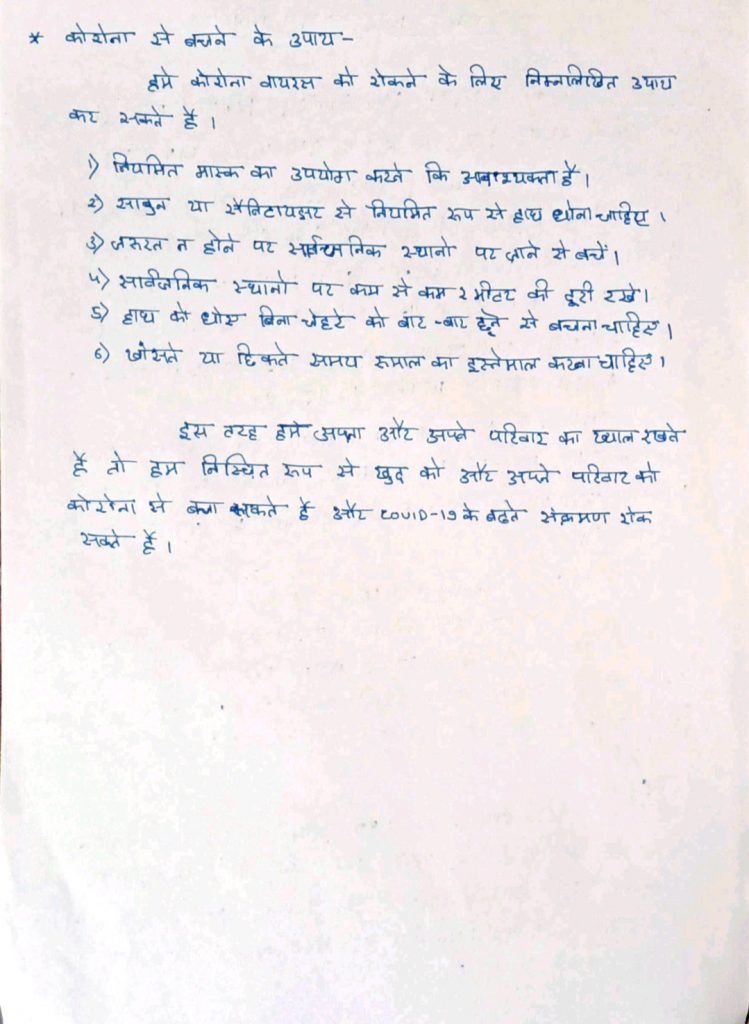 * कोरोना से बचने के उपाय -
हमे कोरोना वायरस को रोकने के लिए निम्नलिखित उपाय
कर सकते है ।
1) नियमित मास्क का उपयोग करने कि आवश्यक्ता है ।
2) साबुन या सॅनिटायझर से नियमित रूप से हाथ धोना चाहिए ।
3) जरूरत न होने पर सार्वजनिक स्थानो पर जाने से बचें ।
4) सार्वजनिक स्थानो पर कम से कम २ मीटर की दूरी रखे ।
5) हाथ को धोए बिना चेहरे को बार-बार छूने से बचना चाहिए ।
6) खाँसते या छिकते समय रूमाल का इस्तेमाल करना चाहिए ।
इस तरह हमे अपना और अपने परिवार का ख्याल रखते
है तो हम निश्चित रूप से खुद को और अपने परिवार को
कोरोना से बचा सकते है और COVID-19 के बढते संक्रमण रोक
सकते है ।